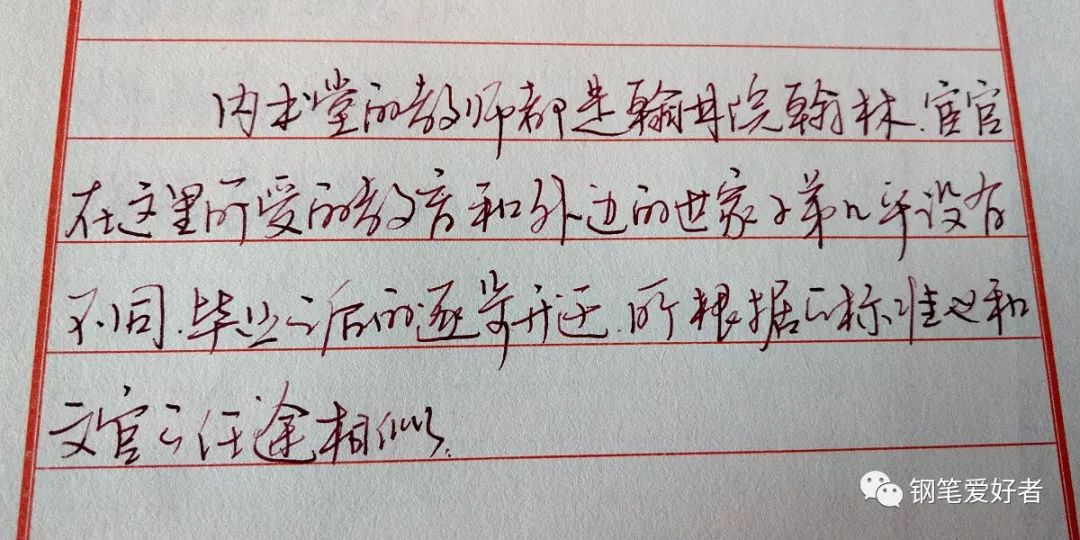 内书堂的教师都是翰林院翰林.宦官
在这里所受的教育和外边的世家子弟几乎没有
不同.毕业之后的逐步升迁.所根据的标准也和
文官之仕途相似.
钢笔爱好者